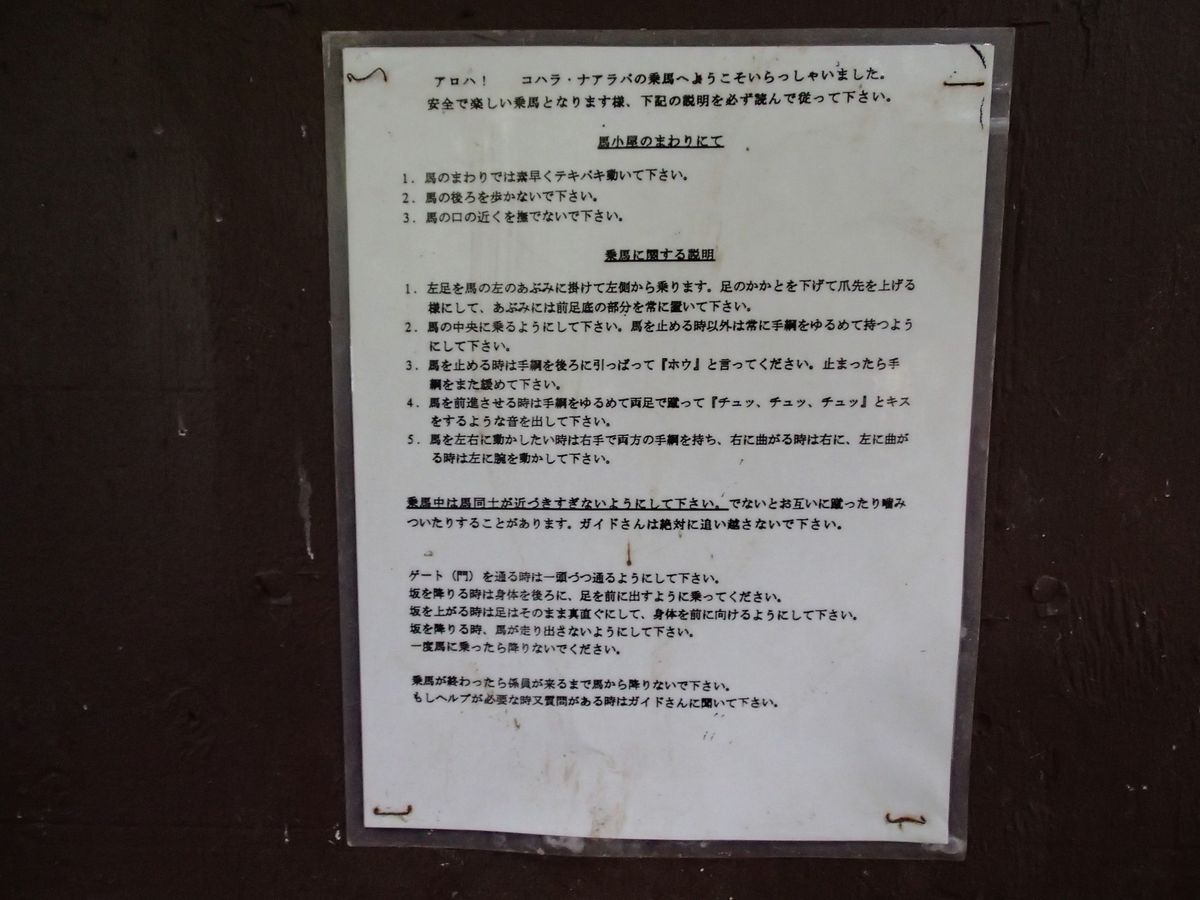 アロハ！　コハラ・ナアラパの乗馬へようこそいらっしゃいました。
安全で楽しい乗馬となります様、下記の説明を必ず読んで従って下さい。
馬小屋のまわりにて
1. 馬のまわりでは素早くテキパキ動いて下さい。
2. 馬の後ろを歩かないで下さい。
3. 馬の口の近くを撫でないで下さい。
乗馬に関する説明
1. 左足を馬の左のあぶみに掛けて左側から乗ります。足のかかとを下げて爪先を上げる
様にして、あぶみには前足底の部分を常に置いて下さい。
2. 馬の中央に乗るようにして下さい。馬を止める時以外は常に手綱をゆるめて持つよう
にして下さい。
3. 馬を止める時は手綱を後ろに引っぱって『ホウ』と言ってください。止まったら手
綱をまた緩めて下さい。
4. 馬を前進させる時は手綱をゆるめて両足で蹴って『チュッ、チュッ、チュッ』とキス
をするような音を出して下さい。
5. 馬を左右に動かしたい時は右手で両方の手綱を持ち、右に曲がる時は右に、左に曲が
る時は左に腕を動かして下さい。
乗馬中は馬同士が近づきすぎないようにして下さい。でないとお互いに蹴ったり噛み
ついたりすることがあります。ガイドさんは絶対に追い越さないで下さい。
ゲート（門）を通る時は一頭づつ通るようにして下さい。
坂を降りる時は身体を後ろに、足を前に出すように乗ってください。
坂を上がる時は足はそのまま真直ぐにして、身体を前に向けるようにして下さい。
坂を降りる時、馬が走り出さないようにして下さい。
一度馬に乗ったら降りないでください。
乗馬が終わったら係員が来るまで馬から降りないで下さい。
もしヘルプが必要な時又質問がある時はガイドさんに聞いて下さい。